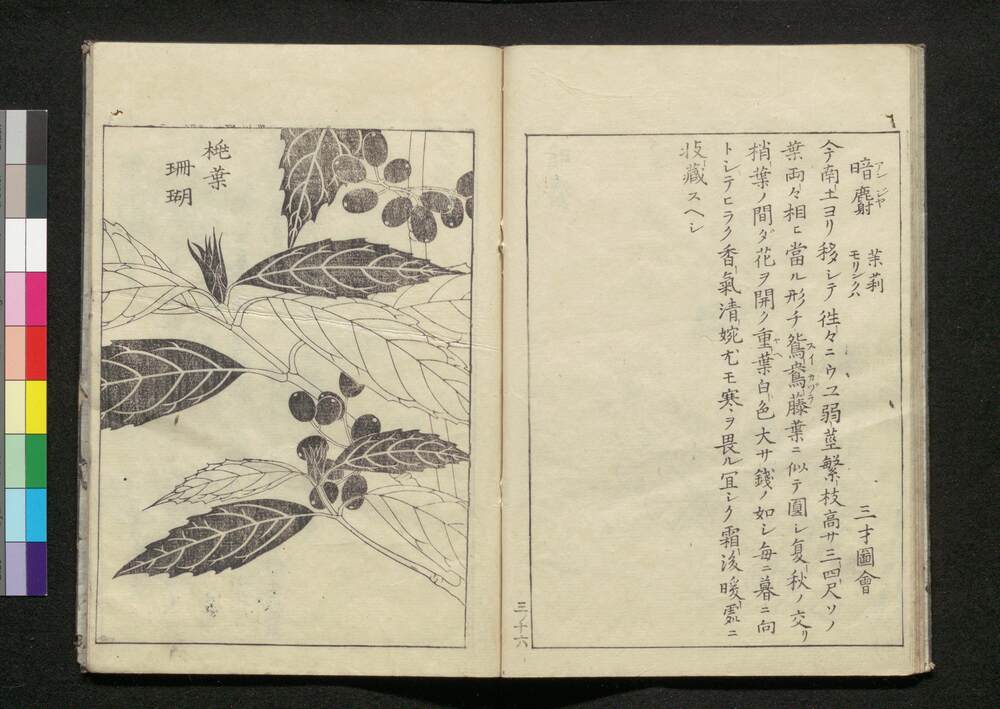 暗麝 茉莉 三才圖會
アンジヤ モリンクハ
今南土ヨリ移シテ徃々ニウユ弱莖繁枝高サ三四尺ソノ
葉両々相ヒ當ル形チ鴛鴦藤葉ニ似テ圓シ夏秋ノ交リ
スイカヅラ
梢葉ノ間ダ花ヲ開ク重葉白色大サ錢ノ如シ毎ニ暮ニ向
ヤヘ
トシテヒラク香氣清婉尤モ寒ヲ畏ル冝シク霜後暖處ニ
收藏スヘシ
三十六
桃葉
珊瑚